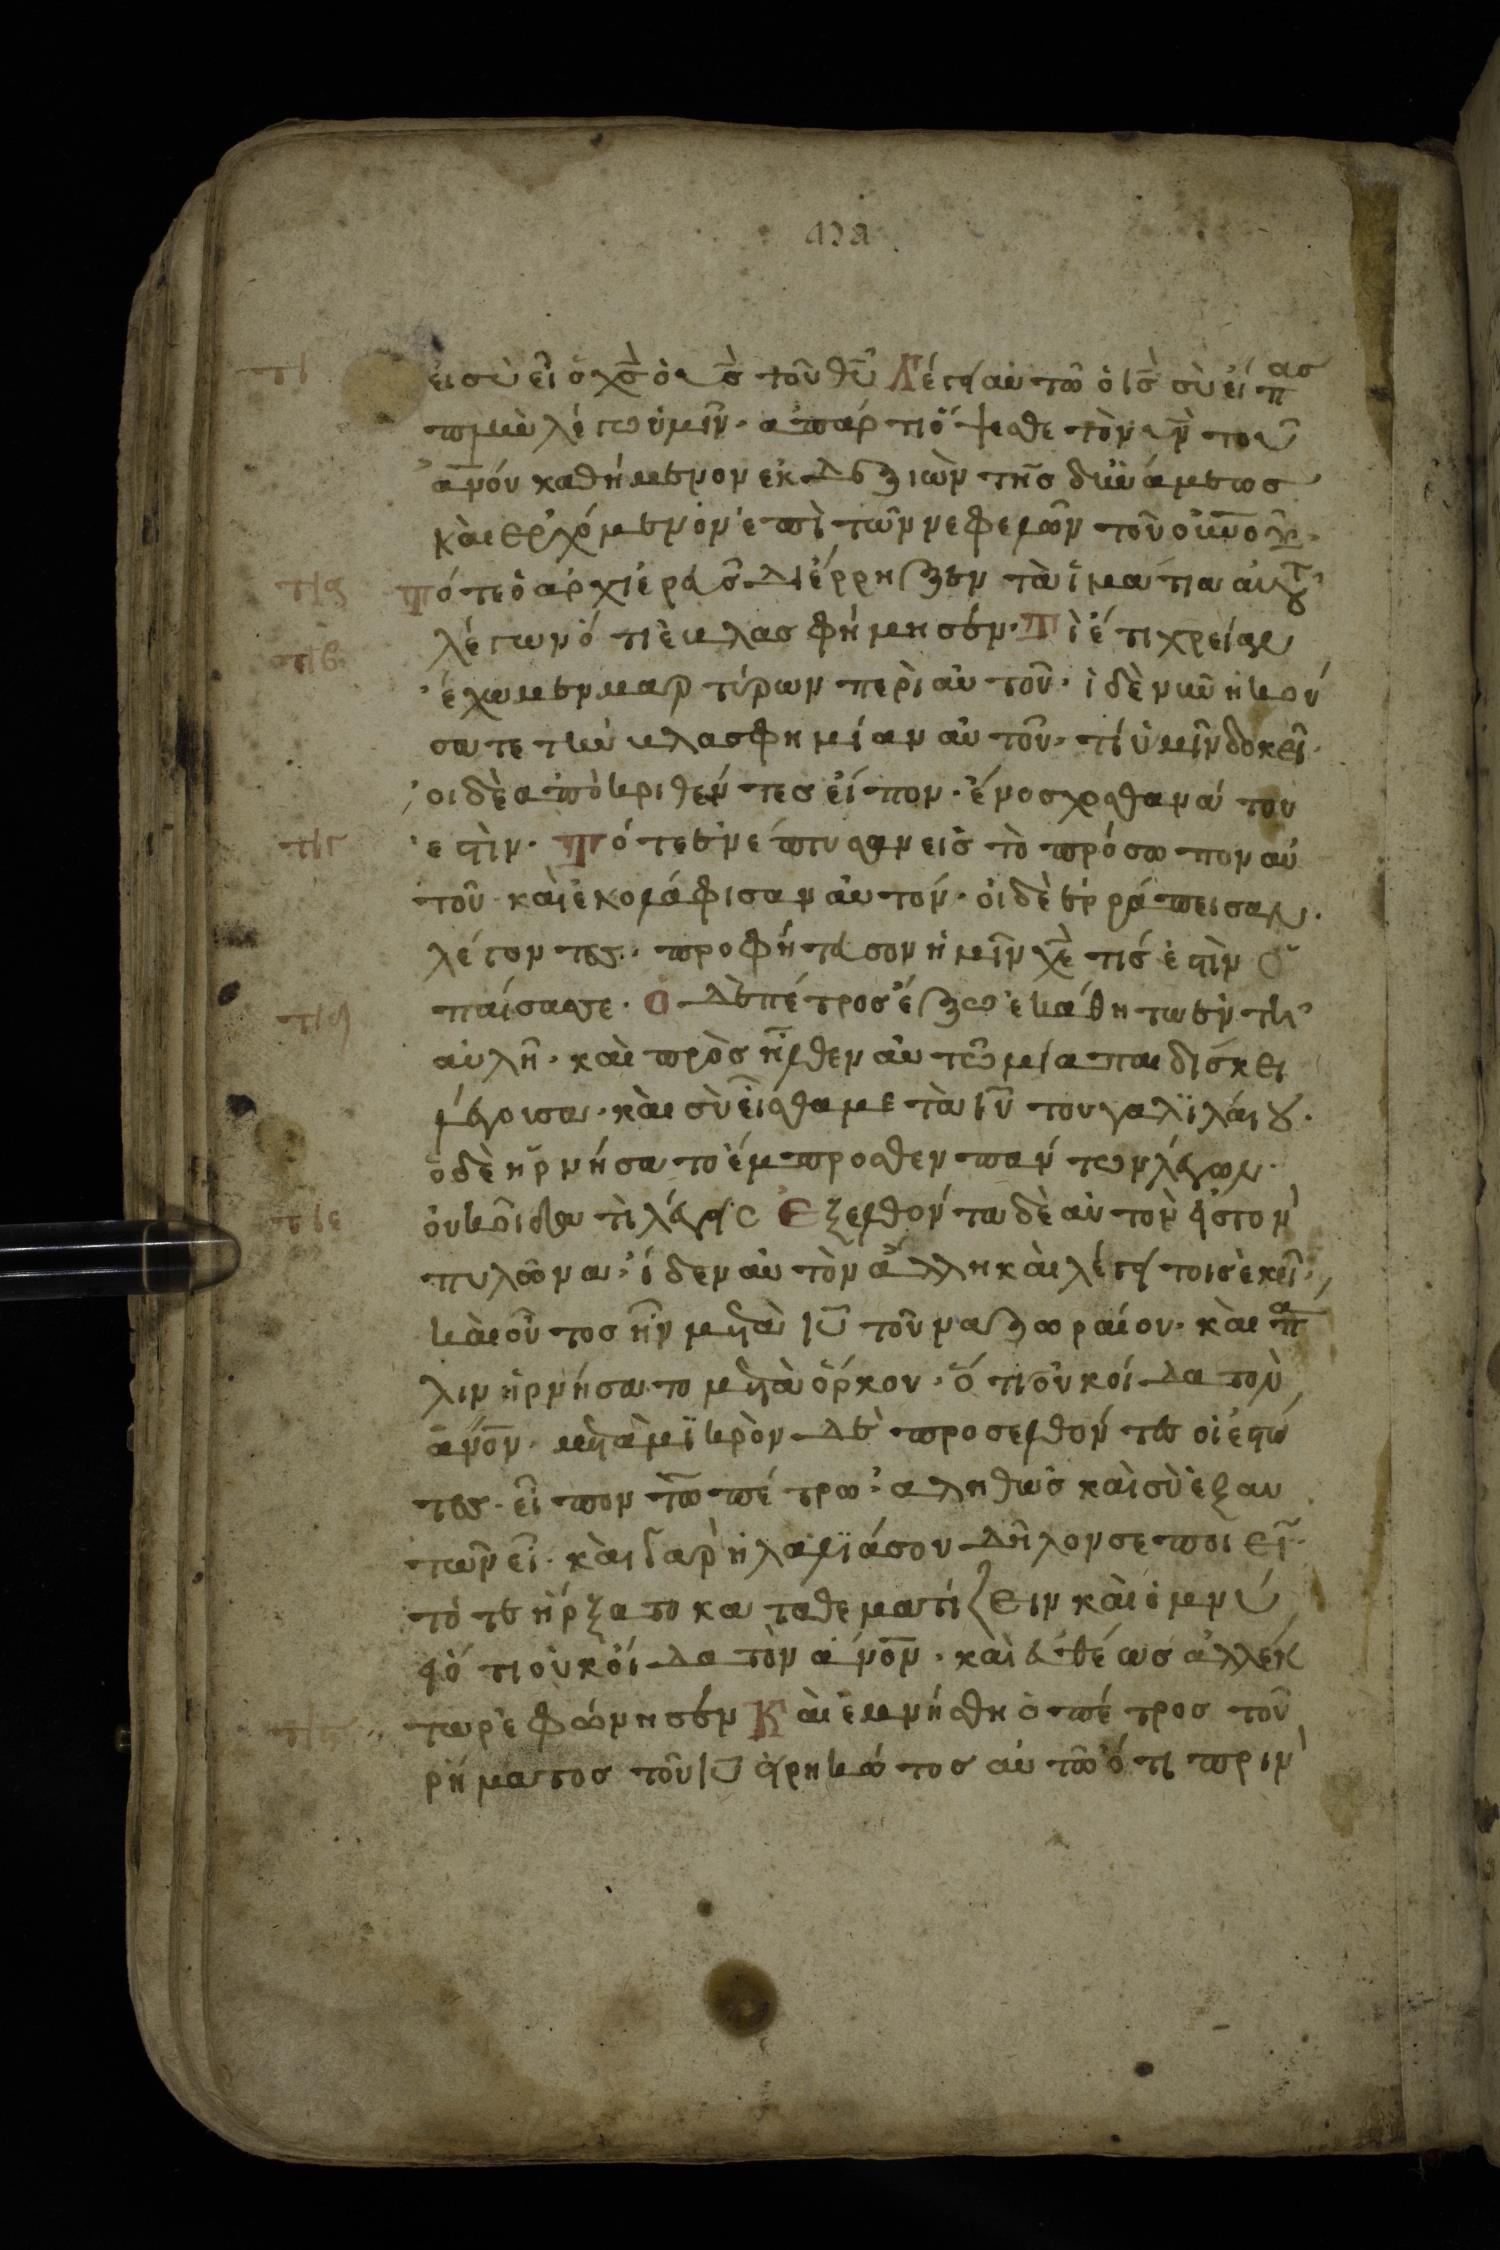 εισὺ εἶ ὁ χ̅ς̅ ὁ υ̅ς̅ τοῦ θ̅υ̅ Λέγει αὐτῶ ὁ ι̅ς̅ σὺ εἶπας
πλὴν λέγω ὑμῖν· απάρτι ὄψεσθε τὸν υ̅ν̅ τοῦ
α̅ν̅ο̅υ̅ καθήμενον εκ δεξιὼν τῆς δυνάμεως
καὶ ερχόμενον ἐπὶ τῶν νεφελῶν τοῦ ο̅υ̅ν̅ο̅υ̅·
Τότε ὁ αρχιέρεὺς διέρρηξεν τὰ ἱμάτια αυτοῦ
λέγων ὅτι ἐβλασφήμησεν· Τὶ ἔτι χρείαν
ἔχωμεν μαρτύρων περὶ αὐτοῦ· ἰδὲ νῦν ἠκού
σατε τὴν βλασφημίαν αὐτοῦ· τί ὑμῖν δοκεῖ·
οι δὲ αποκριθέντες εἶπον· ἔνοσχος θανάτου
ἐστὶν· Τότε ἐνέπτυσαν εις τὸ πρόσωπον αὐ
τοῦ καὶ ἐκολάφισαν αὐτόν· οἱ δὲ ἐρράπεισαν·
λέγοντες· προφήτευσον ἡμῖν χ̅ε̅ τίς ἐστὶν ὁ
παίσας σε· Ο δὲ πέτρος ἔξω ἐκάθητω ἐν τῆ
αὐλῆ· καὶ πρὸσῆλθεν αυτῶ μία παιδίσκει
λέγοισα· καὶ σὺ εἶσθα μετὰ ι̅υ̅ του γαλϊλάιου·
ὁ δὲ ἠρνήσατο ἔμπροσθεν παντων λέγων·
οὐκ οἶδα τὶ λέγεις Εξελθόντα δὲ αὐτὸν εἰς τον
πυλῶνα· ἴδεν αὐτὸν ἄλλη καὶ λέγει τοις ἐκεῖ·
καὶ οὗτος ἦν μετὰ ι̅υ̅ τοῦ ναζωραίου· καὶ πα
λιν ἠρνήσατο μετὰ ὅρκου· ὅτι οὐκ οίδα τὸν
α̅ν̅ο̅ν̅· μετὰ μϊκρὸν δὲ προσελθόντες οἱ ἑστῶ
τες· εἶπον τῶ πέτρω· αληθῶς καὶ σὺ ἐξ αυ
τῶν εἶ· καὶ γὰρ ἡ λαλϊά σου δῆλον σε ποιεῖ·
τότε ἤρξατο καταθεματίζειν καὶ ομνύ
ειν ὅτι οὐκ οἶδα τὸν α̅ν̅ο̅ν̅· καὶ ευθέως ἀλλέκ
τωρ ἐφώνησεν Καὶ ἐμνήσθη ὁ πέτρος τοῦ
ρήματος τοῦ ι̅υ̅ εἰρηκότος αὐτῶ ὅτι πριν